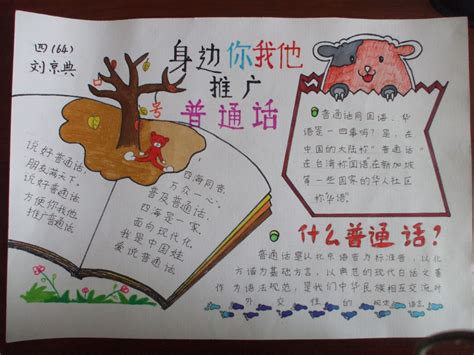 四(64)
刘京典
身边你我他
推广
普通话
号
说好普通话,
朋友满天下。
说好普通话
方便你我他
推广普通话
四海同音,
万众一心,
普及普通话,
四海是一家,
面向现代化
我是中国娃
爱说普通话
普通话同国语、华
语是一回事吗?是,在
中国的大陆称“普通话”
在台湾称国语,在新加坡
等一些国家的华人社区
称华语。
什么普通话?
普通话是以北京语音为标准音,以北
方话为基础方言,以典范的现代白话文著
作为语法规范,是我们中华民族相互交流对
外交往的规范语言